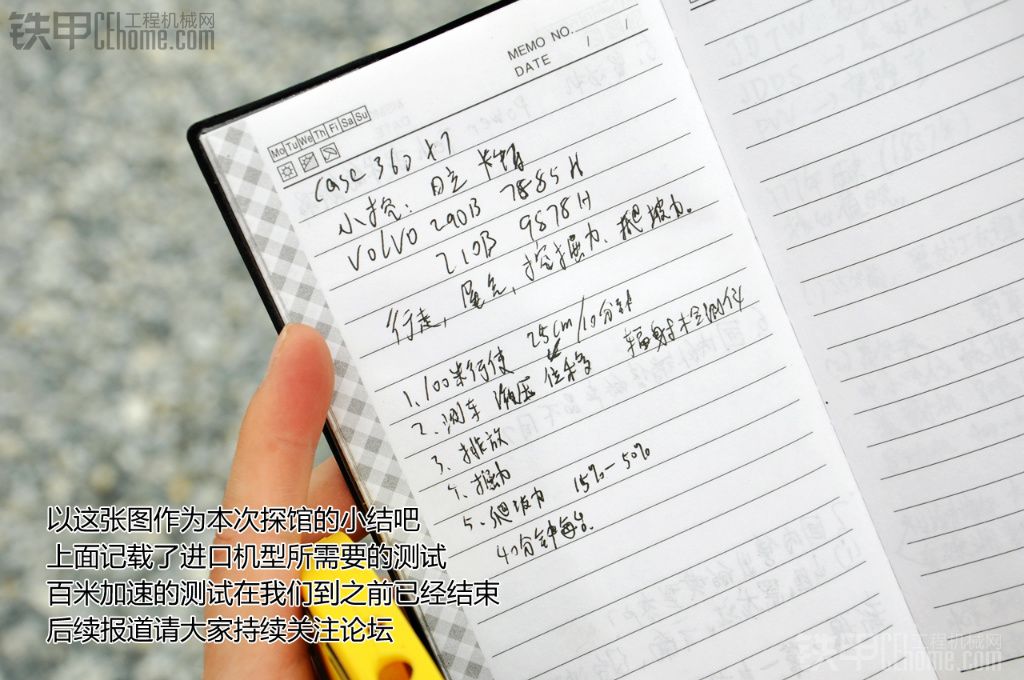 铁甲 工程机械网
CEhome.com
MEMO NO.
DATE / /
Mo Tu We Th Fi Sa Su
Case 360 x7
小挖: 日立 卡特
VOLVO 290B 7885H
210B 9878H
行走, 尾气, 挖掘力、爬坡力。
1、100米行使 25cm/10分钟
2、测车 液压 位移 辐射检测仪
3、排放
4、掘力
5、爬坡力 15%-50%
40分钟每台.
以这张图作为本次探馆的小结吧
上面记载了进口机型所需要的测试
百米加速的测试在我们到之前已经结束
后续报道请大家持续关注论坛
铁甲 工程机械网
CEhome.com